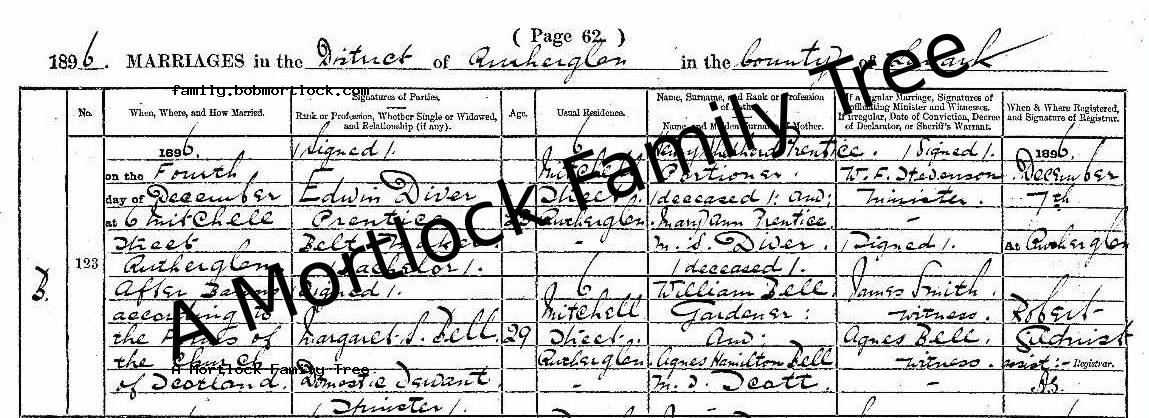 ( Page 62 )
1896. MARRIAGES in the District of Rutherglen in the County of Lanark
family.bobmortlock.com
No.
When, Where, and How Married.
Signatures of Parties.
Rank or Profession, Whether Single or Widowed, and Relationship (if any).
Age.
Usual Residence.
Name, Surname, and Rank or Profession of Father.
Name, and Maiden Surname of Mother.
If a Regular Marriage, Signatures of officiating Minister and Witnesses.
If irregular, Date of Conviction, Decree of Declarator, or Sheriff's Warrant.
When & Where Registered, and Signature of Registrar.
123
B.
1896.
on the Fourth
day of December
at 6 Mitchell
Street
Rutherglen
After Banns
according to
the
of
the Church
of Scotland.
(Signed).
Edwin Diver
Prentice
Belt Maker
(Bachelor).
(Signed).
Margaret S. Bell.
Domestic Servant
(Spinster).
29
6
Mitchell
Street,
Rutherglen
6
Mitchell
Street,
Rutherglen
Prentice.
Portioner.
(deceased): and
Mary Ann Prentice
M. S. Diver.
(deceased).
William Bell
Gardener:
and
Agnes Hamilton Bell
M. S. Scott
(Signed).
W. F. Stevenson
Minister.
(Signed).
James Smith.
witness.
Agnes Bell.
witness.
1896.
December
7th
at Rutherglen
Robert
Assist:- Registrar.
A Mortlock Family Tree
A Mortlock Family Tree